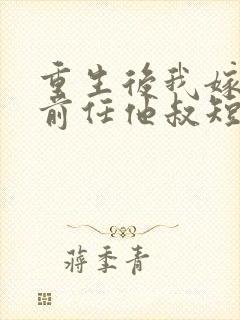 重生後我嫁
前任他叔短
蔣季青